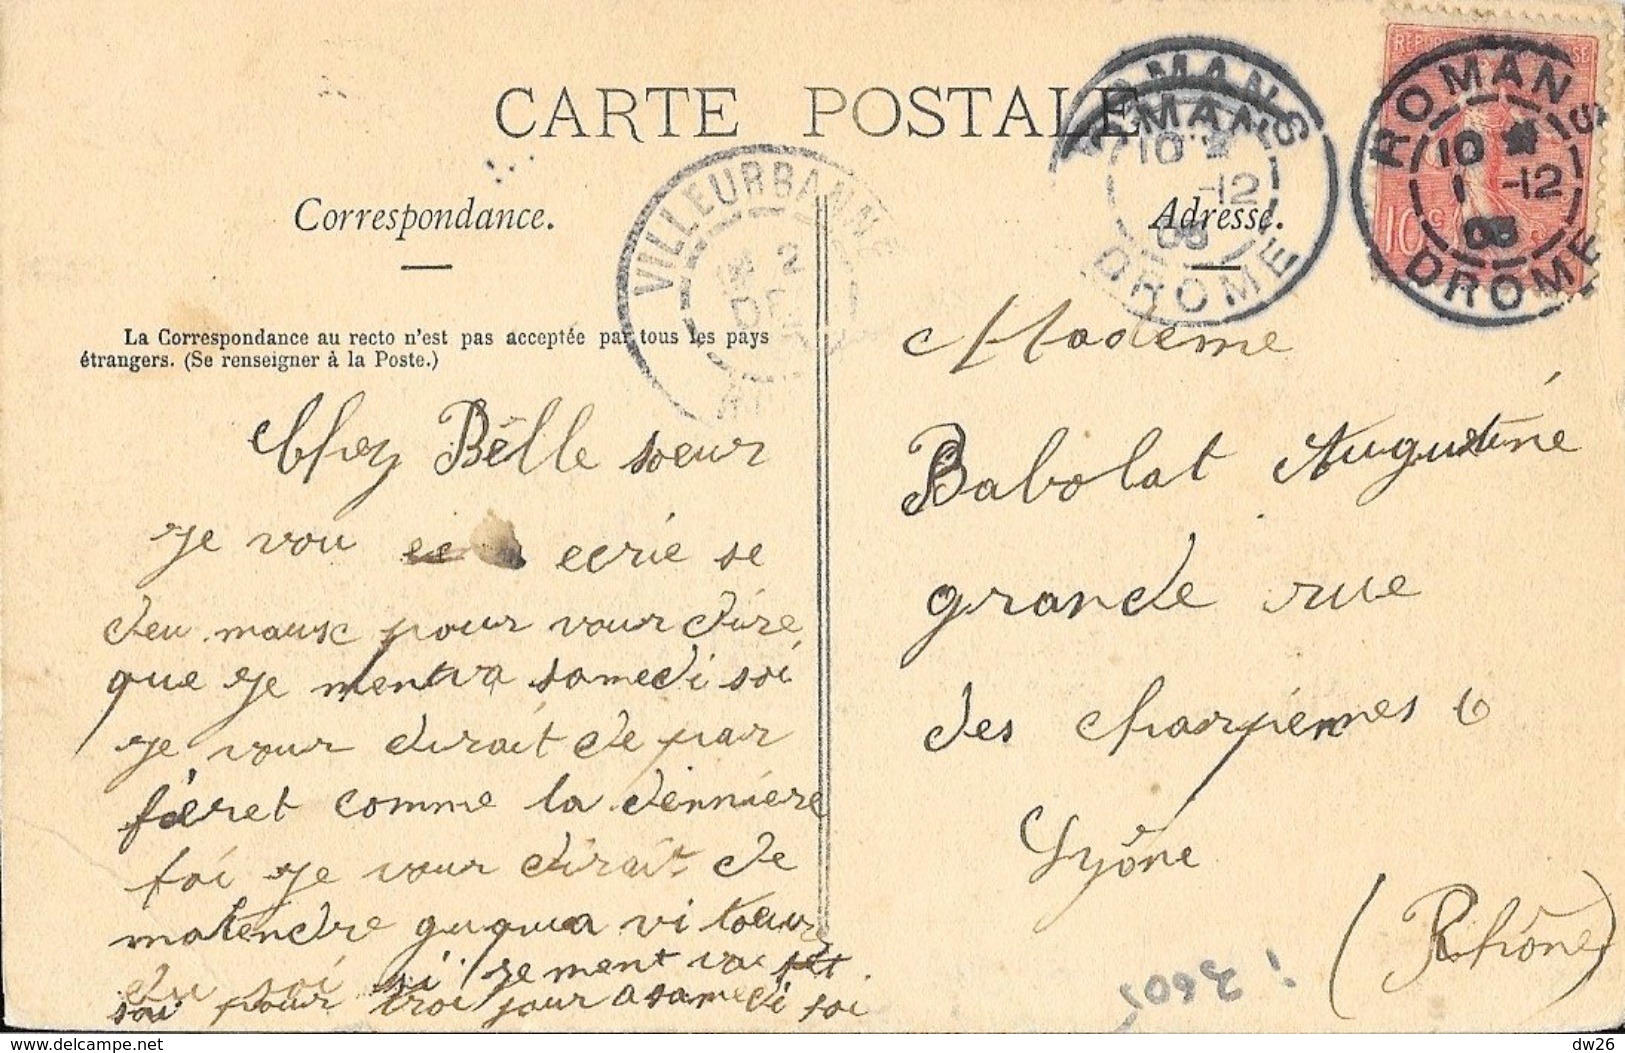 CARTE POSTALE
Correspondance.
Adresse.
La Correspondance au recto n'est pas acceptée par tous les pays
étrangers. (Se renseigner à la Poste.)
ROMANS
10
1 -12
DROME
ROMANS
10
-12
DROME
VILLEURBANNE
2
REPUB
10c
Chey Bélle soeur
Je vou ecrie se
deu mausc pour vour dire
que je mentva samedi soi
Je vour dirait de par
féret comme la dennière
foi je vour dirait de
matendre guqua vi toeur
du soi si je ment vai
soi pour troi jour a samedi soi
Madame
Babolat Augustine
grande rue
des charpennes 6
Lyône
(Rhône)
dw26